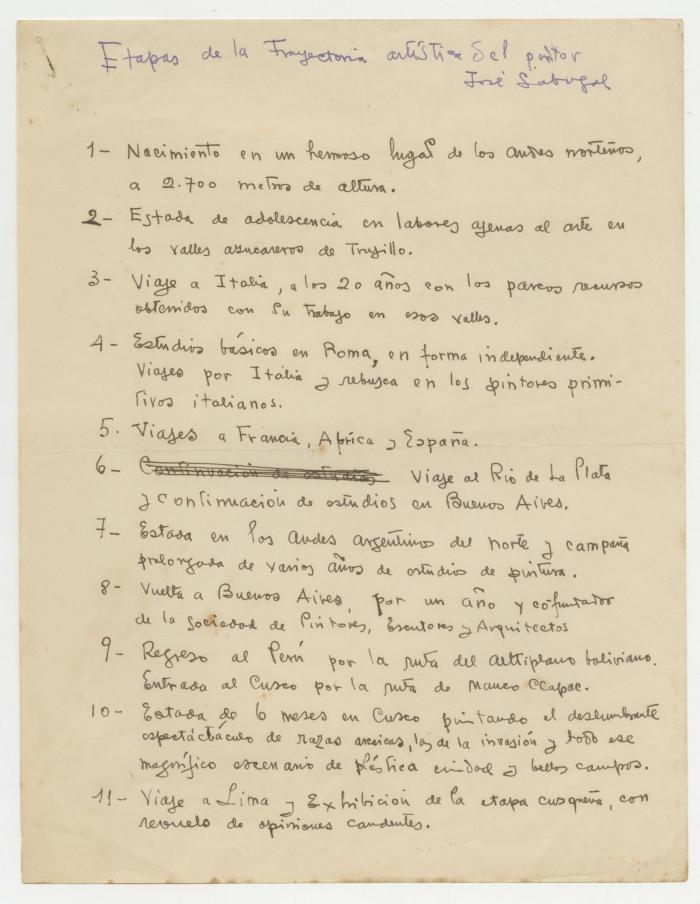 Etapas de la Trayectoria artística del pintor
José Sabogal
1- Nacimiento en un hermoso lugar de los andes norteños,
a 2.700 metros de altura.
2- Estada de adolescencia en labores ajenas al arte en
los valles azucareros de Trujillo.
3- Viaje a Italia, a los 20 años con los parcos recursos
obtenidos con su trabajo en esos valles.
4- Estudios básicos en Roma, en forma independiente.
Viajes por Italia y rebusca en los pintores primi-
tivos italianos.
5. Viajes a Francia, Africa y España.
6- Continuación de estudios Viaje al Rio de La Plata
y continuación de estudios en Buenos Aires.
7- Estada en los andes argentinos del norte y campaña
prolongada de varios años de estudios de pintura.
8- Vuelta a Buenos Aires, por un año y cofundador
de la Sociedad de Pintores, Escultores y Arquitectos
9- Regreso al Perú por la ruta del altiplano boliviano.
Entrada al Cusco por la ruta de Manco CCapac.
10- Estada de 6 meses en Cusco pintando el deslumbrante
espectáctáculo de razas arcaicas, las de la invasión y todo ese
magnífico escenario de plástica ciudad y bellos campos.
11- Viaje a Lima y Exhibición de la etapa cusqueña, con
revuelo de opiniones candentes.